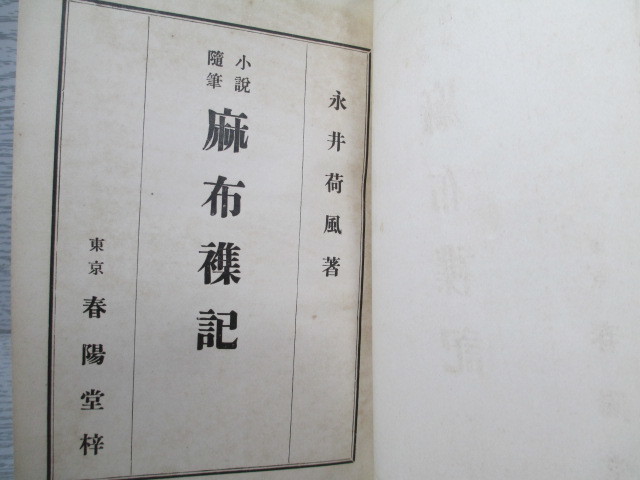 永井荷風著
小説
隨筆
麻布襍記
東京 春陽堂梓